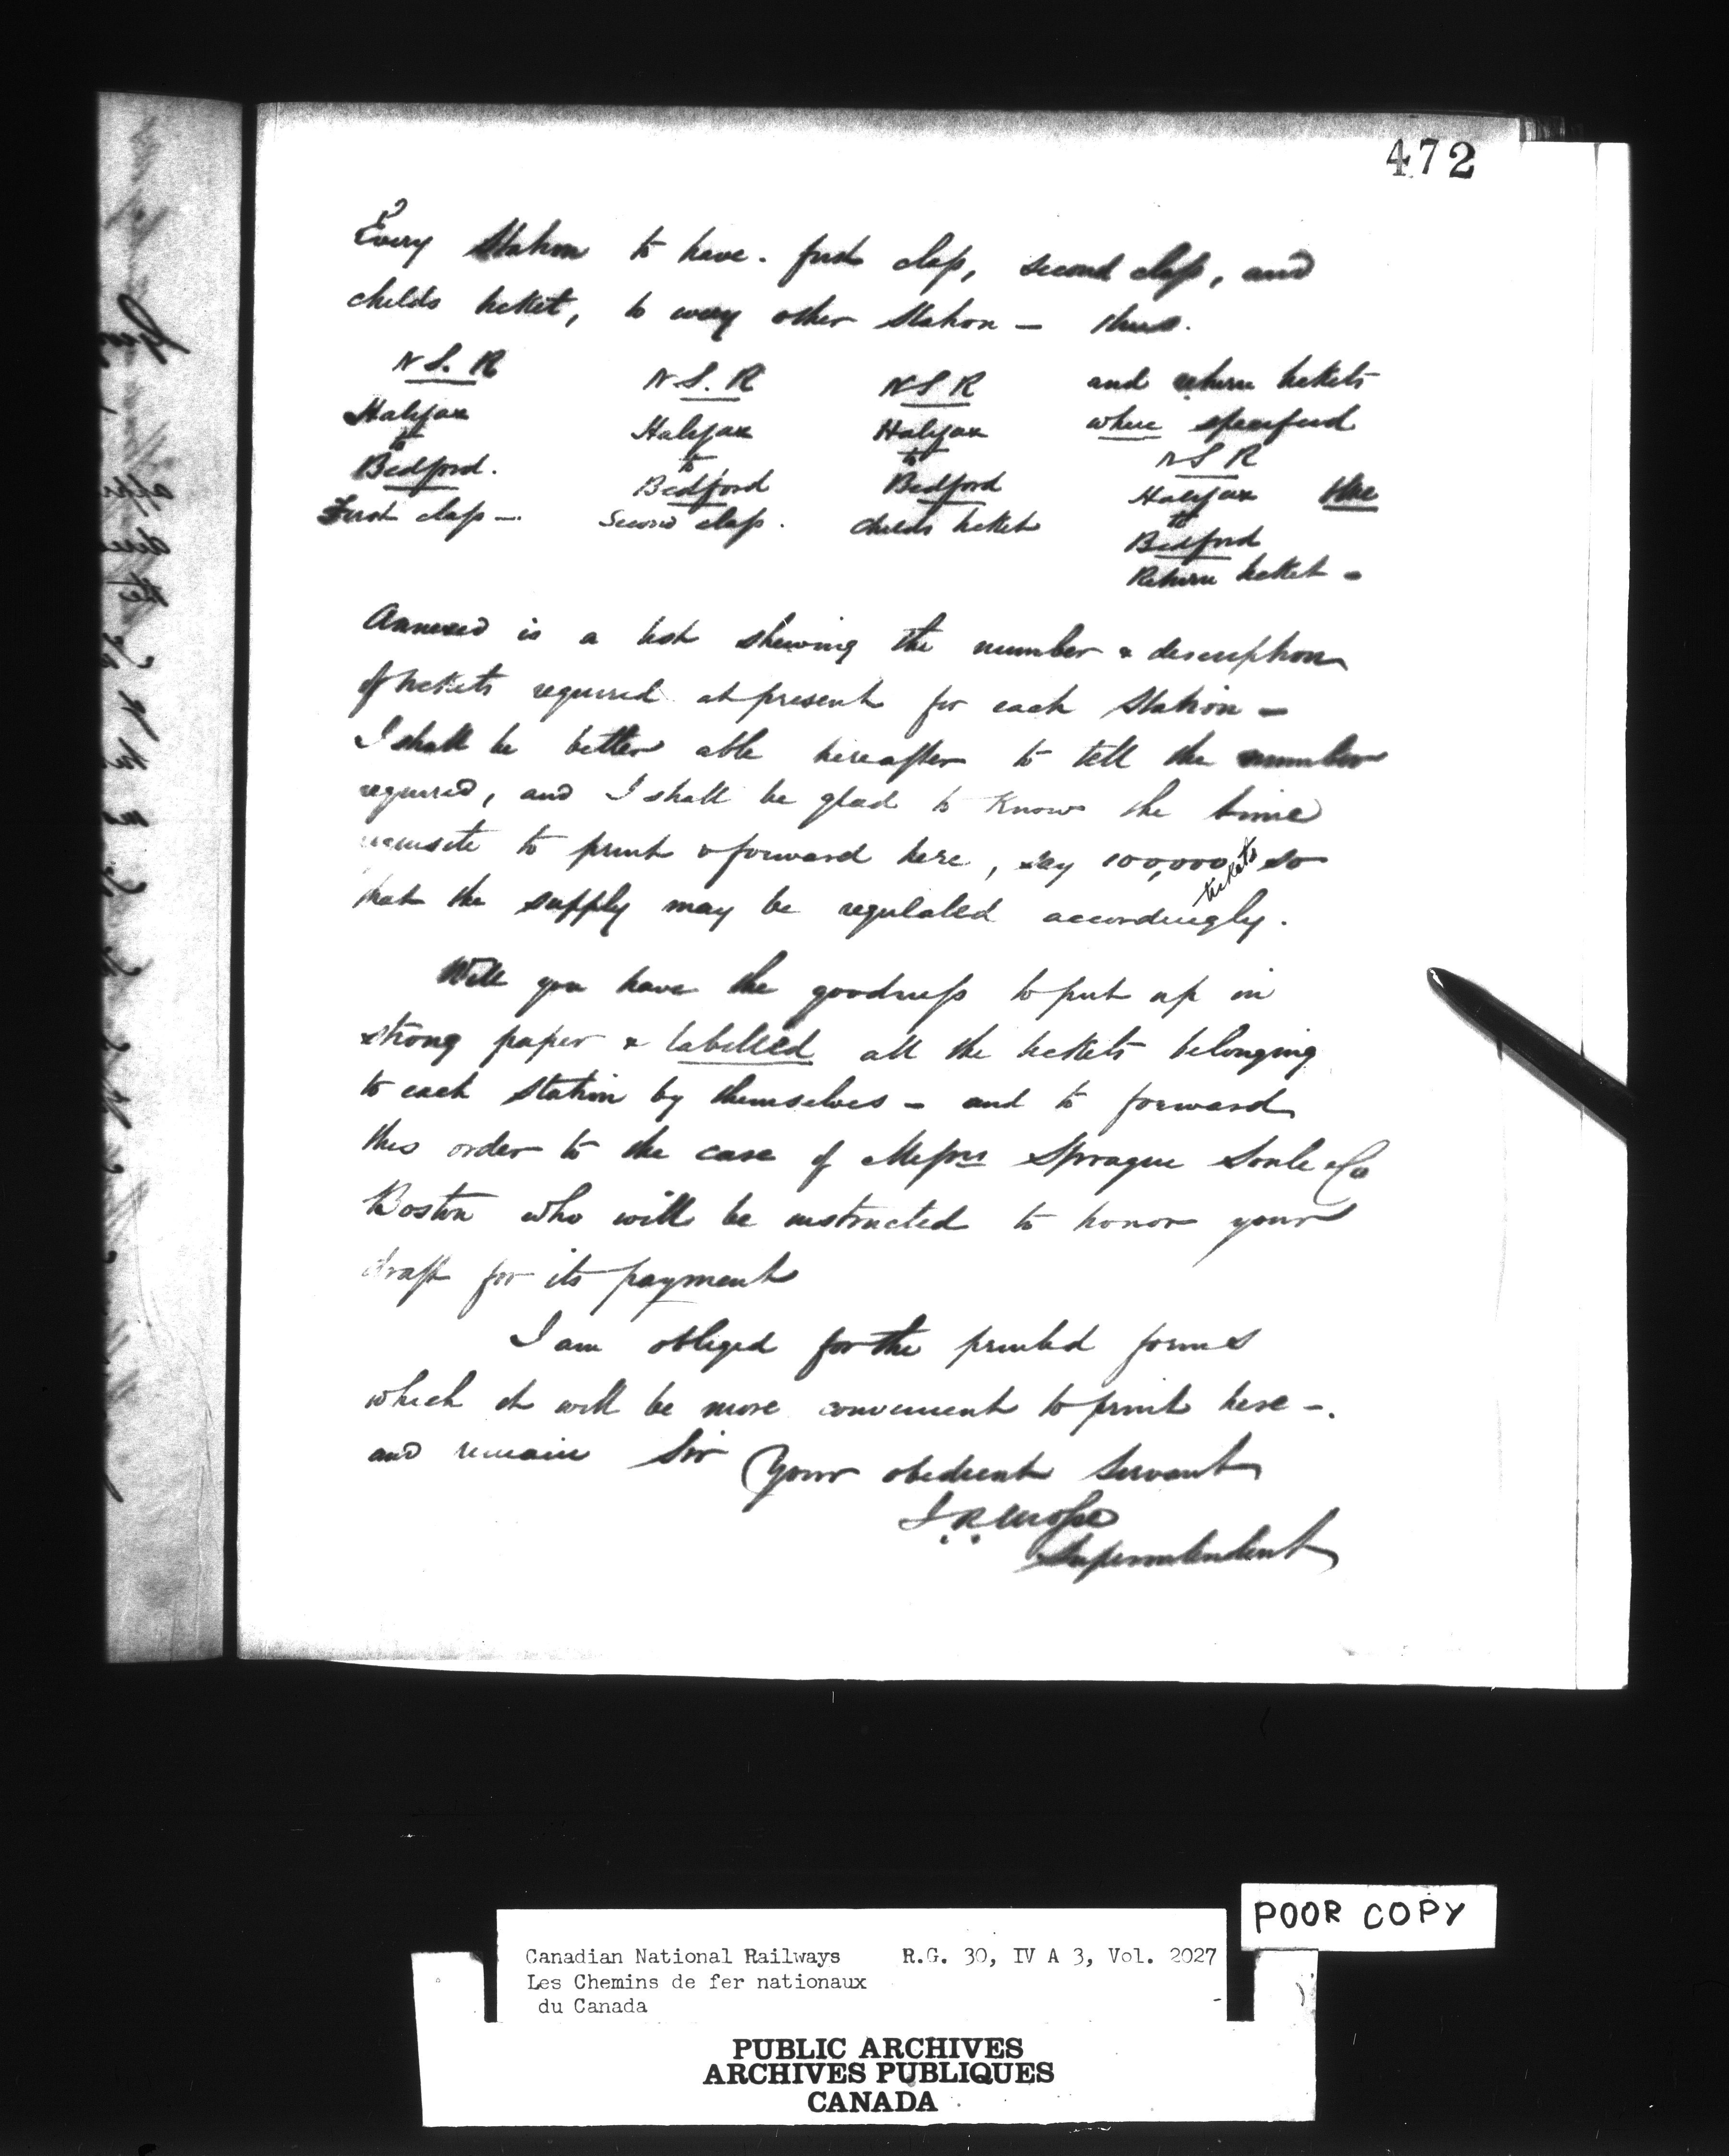 472
Every Station to have. first class, second class, and
childs ticket, to every other Station — thus.
N S. R
Halifax
to
Bedford.
First class —
N S. R
Halifax
to
Bedford
Second class.
N S R
Halifax
to
Bedford
Childs ticket
and return tickets
where specified
N S R
Halifax thus
to
Bedford
Return ticket —
Annexed is a list shewing the number & description
of tickets required at present for each Station —
I shall be better able hereafter to tell the number
required, and I shall be glad to know the time
requisite to print & forward here, say 100,000 tickets so
that the supply may be regulated accordingly.
Will you have the goodness to put up in
strong paper & labelled all the tickets belonging
to each Station by themselves — and to forward
this order to the care of Messrs Sprague Soule & Co
Boston who will be instructed to honor your
draft for its payment
I am obliged for the printed forms
which it will be more convenient to print here —.
and remain Sir Your obedient Servant
J. R. Mosse
Superintendent
POOR COPY
Canadian National Railways R.G. 30, IV A 3, Vol. 2027
Les Chemins de fer nationaux
du Canada
PUBLIC ARCHIVES
ARCHIVES PUBLIQUES
CANADA